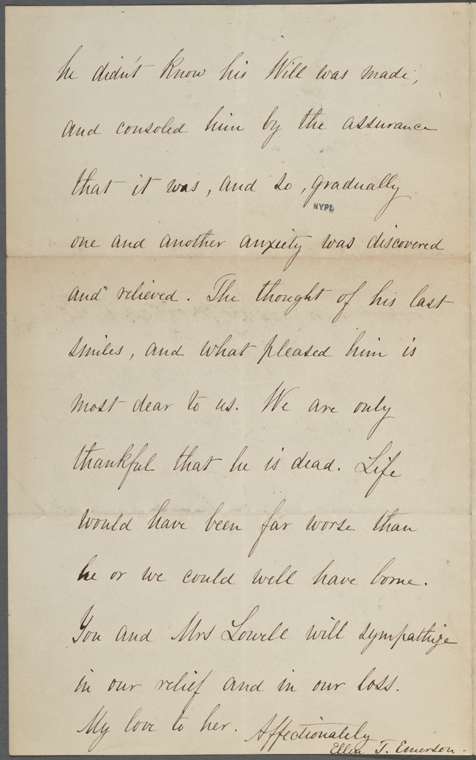 he didn't know his Will was made,
and consoled him by the assurance
that it was, and so, gradually
NYPL
one and another anxiety was discovered
and relieved. The thought of his last
smiles, and what pleased him is
most dear to us. We are only
thankful that he is dead. Life
would have been far worse than
he or we could well have borne.
You and Mrs Lowell will sympathize
in our relief and in our loss.
My love to her. Affectionately
Ellen T. Emerson.